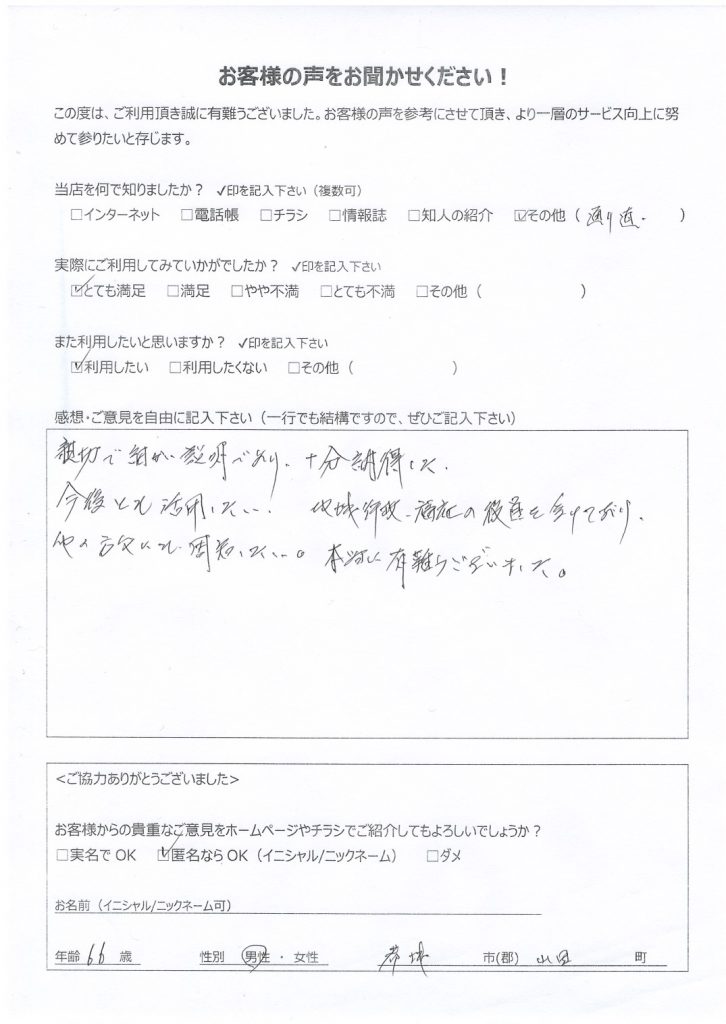 お客様の声をお聞かせください！
この度は、ご利用頂き誠に有難うございました。お客様の声を参考にさせて頂き、より一層のサービス向上に努
めて参りたいと存じます。
当店を何で知りましたか？ ✓印を記入下さい（複数可）
□インターネット □電話帳 □チラシ □情報誌 □知人の紹介 ☑その他（ 通り道. ）
実際にご利用してみていかがでしたか？ ✓印を記入下さい
☑とても満足 □満足 □やや不満 □とても不満 □その他（ ）
また利用したいと思いますか？ ✓印を記入下さい
☑利用したい □利用したくない □その他（ ）
感想・ご意見を自由に記入下さい（一行でも結構ですので、ぜひご記入下さい）
親切で細かい説明であり、十分納得した.
今後とも活用したい! 地域行政、福祉の役員を受けており、
他の方々にも周知したい。本当に有難うございました。
<ご協力ありがとうございました>
お客様からの貴重なご意見をホームページやチラシでご紹介してもよろしいでしょうか？
□実名で OK ☑匿名なら OK（イニシャル/ニックネーム） □ダメ
お名前（イニシャル/ニックネーム可）
年齢 66 歳 性別 男性 ・ 女性 都城 市(郡) 山田 町